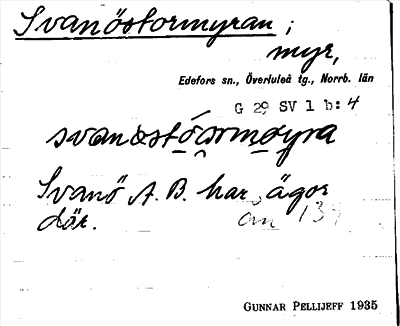 Svanöstormyran ;
myr,
Edefors sn., Överluleå tg., Norrb. län
G 29 SV 1 b: 4
Svanö A. B. har ägor
där.
GUNNAR PELLIJEFF 1935